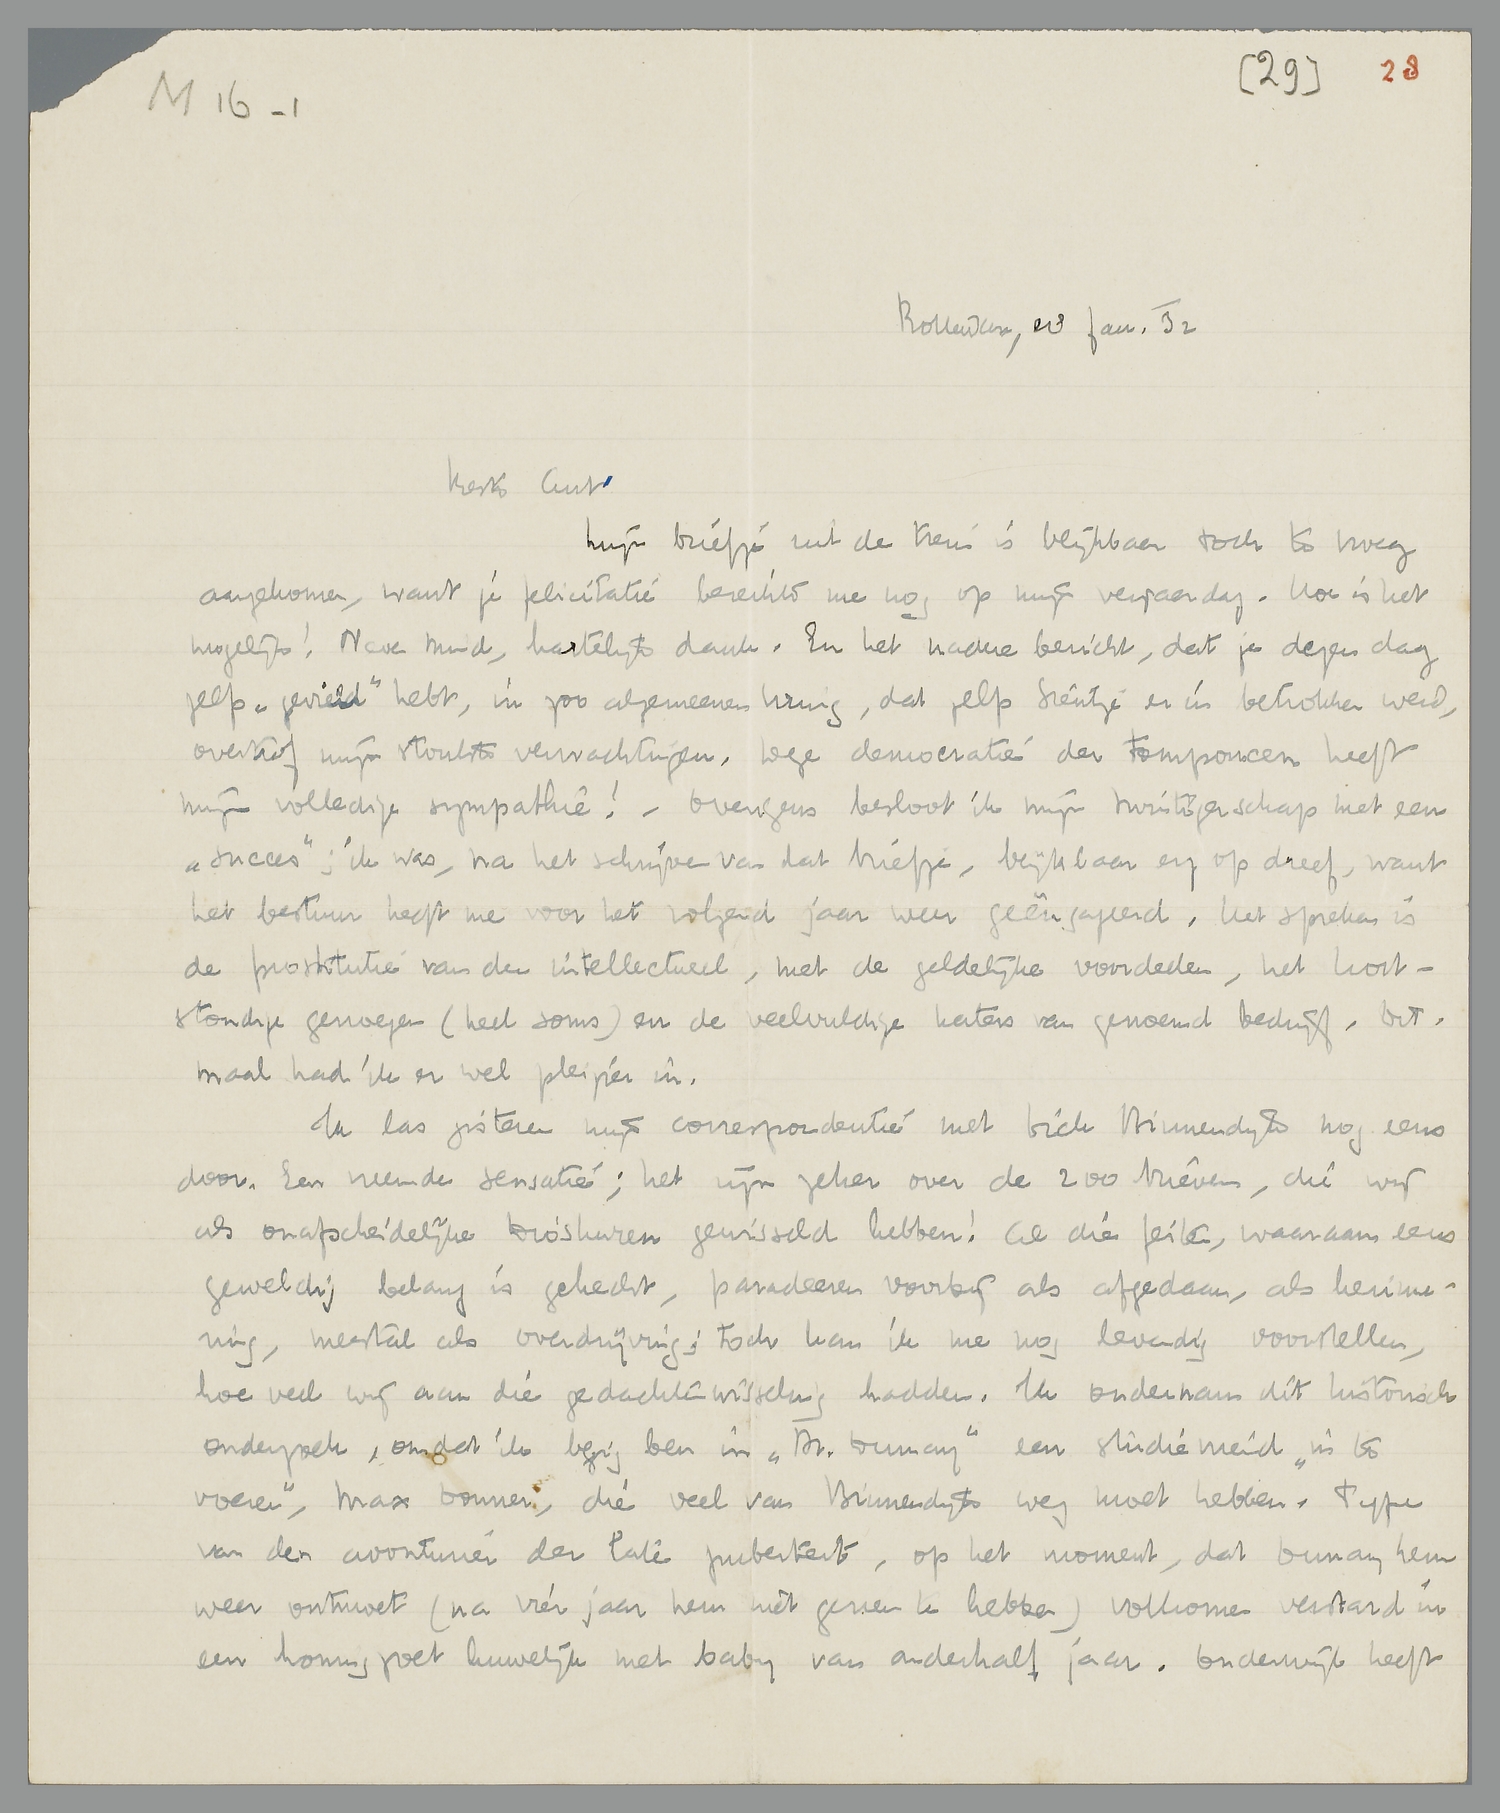 M 16-1
[29] 28
Rotterdam, 13 Jan. 32
Beste Ant
Mijn briefje uit de trein is blijkbaar toch te vroeg
aangekomen, want je felicitatie bereikte me nog op mijn verjaardag. Hoe is het
mogelijk! Never mind, hartelijk dank. En het nadere bericht, dat je dezen dag
zelf „gevierd" hebt, in zoo algemeenen kring, dat zelf Sientje er in betrokken werd,
overtrof mijn stoutste verwachtingen. Deze democratie der tompoucen heeft
mijn volledige sympathie! - Overigens besloot ik mijn twintigerschap met een
„succes"; ik was, na het schrijven van dat briefje, blijkbaar erg op dreef, want
het bestuur heeft me voor het volgend jaar weer geëngageerd. Het spreken is
de prostitutie van den intellectueel, met de geldelijke voordeelen, het kort-
stondige genoegen (heel soms) en de veelvuldige katers van genoemd bedrijf. Dit-
maal had ik er wel pleizier in.
Ik las gisteren mijn correspondentie met Dick Binnendijk nog eens
door. Een vreemde sensatie; het zijn zeker over de 200 brieven, die wij
als onafscheidelijke Dioskuren gewisseld hebben! Al die feiten, waaraan eens
geweldig belang is gehecht, paradeeren voorbij als afgedaan, als herinne-
ring, meestal als overdrijving; toch kan ik me nog levendig voorstellen,
hoe veel wij aan die gedachtenwisseling hadden. Ik ondernam dit historisch
onderzoek, omdat ik bezig ben in „Dr. Dumay" een studievriend „in te
voeren", Max Donner, die veel van Binnendijk weg moet hebben. Type
van den avonturier der late puberteit, op het moment, dat Dumay hem
weer ontmoet (na vier jaar hem niet gezien te hebben) volkomen verstard in
een honingzoet huwelijk met baby van anderhalf jaar. Onderwijl heeft